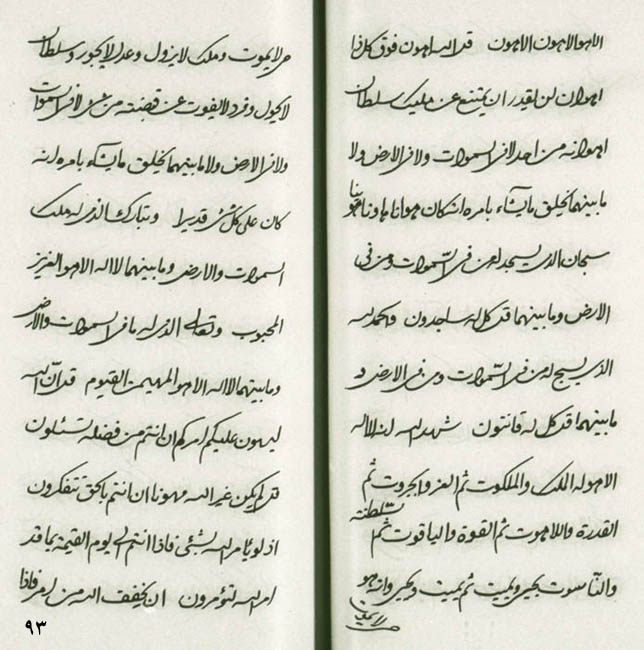 الاهو الاهون الاهون قل الله اهون فوق كل ذا
اهوان لن يقدر ان يمتنع عن مليك سلطان
اهوانه من احد لا فى السموات ولا فى الارض ولا
ما بينهما يخلق ما يشآء بامره انه كان هوانا هاونا
هوينا
سبحان الذى يسجد له من فى السموات ومن فى
الارض وما بينهما قل كل له ساجدون والحمد لله
الذى يسبح له من فى السموات ومن فى الارض و
ما بينهما قل كل له قانتون شهد الله انه لا اله
الا هو له الملك والملكوت ثم العز والجبروت ثم
القدرة واللاهوت ثم القوة والياقوت ثم
السلطنة
والناسوت يحيى ويميت ثم يميت ويحيى وانه هو
حى لا يموت وملك لا يزول وعدل لا يجور وسلطان
لا يحول وفرد لا يفوت عن قبضته من شئ لا فى السموات
ولا فى الارض ولا ما بينهما يخلق ما يشآء بامره انه
كان على كل شئ قديرا وتبارك الذى له ملك
السموات والارض وما بينهما لا اله الا هو العزيز
المحبوب وتعالى الذى له ما فى السموات والارض
وما بينهما لا اله الا هو المهيمن القيوم قل ان الله
ليهون عليكم امركم ان انتم من فضله تسئلون
قل لم يكن غير الله مهونا ان انتم بالحق تتفكرون
اذ لو يامر الله بشئ فاذا انتم الى يوم القيمة بما قد
امر الله لتؤمرون ان يخفف الله من امر فاذا
٩٣